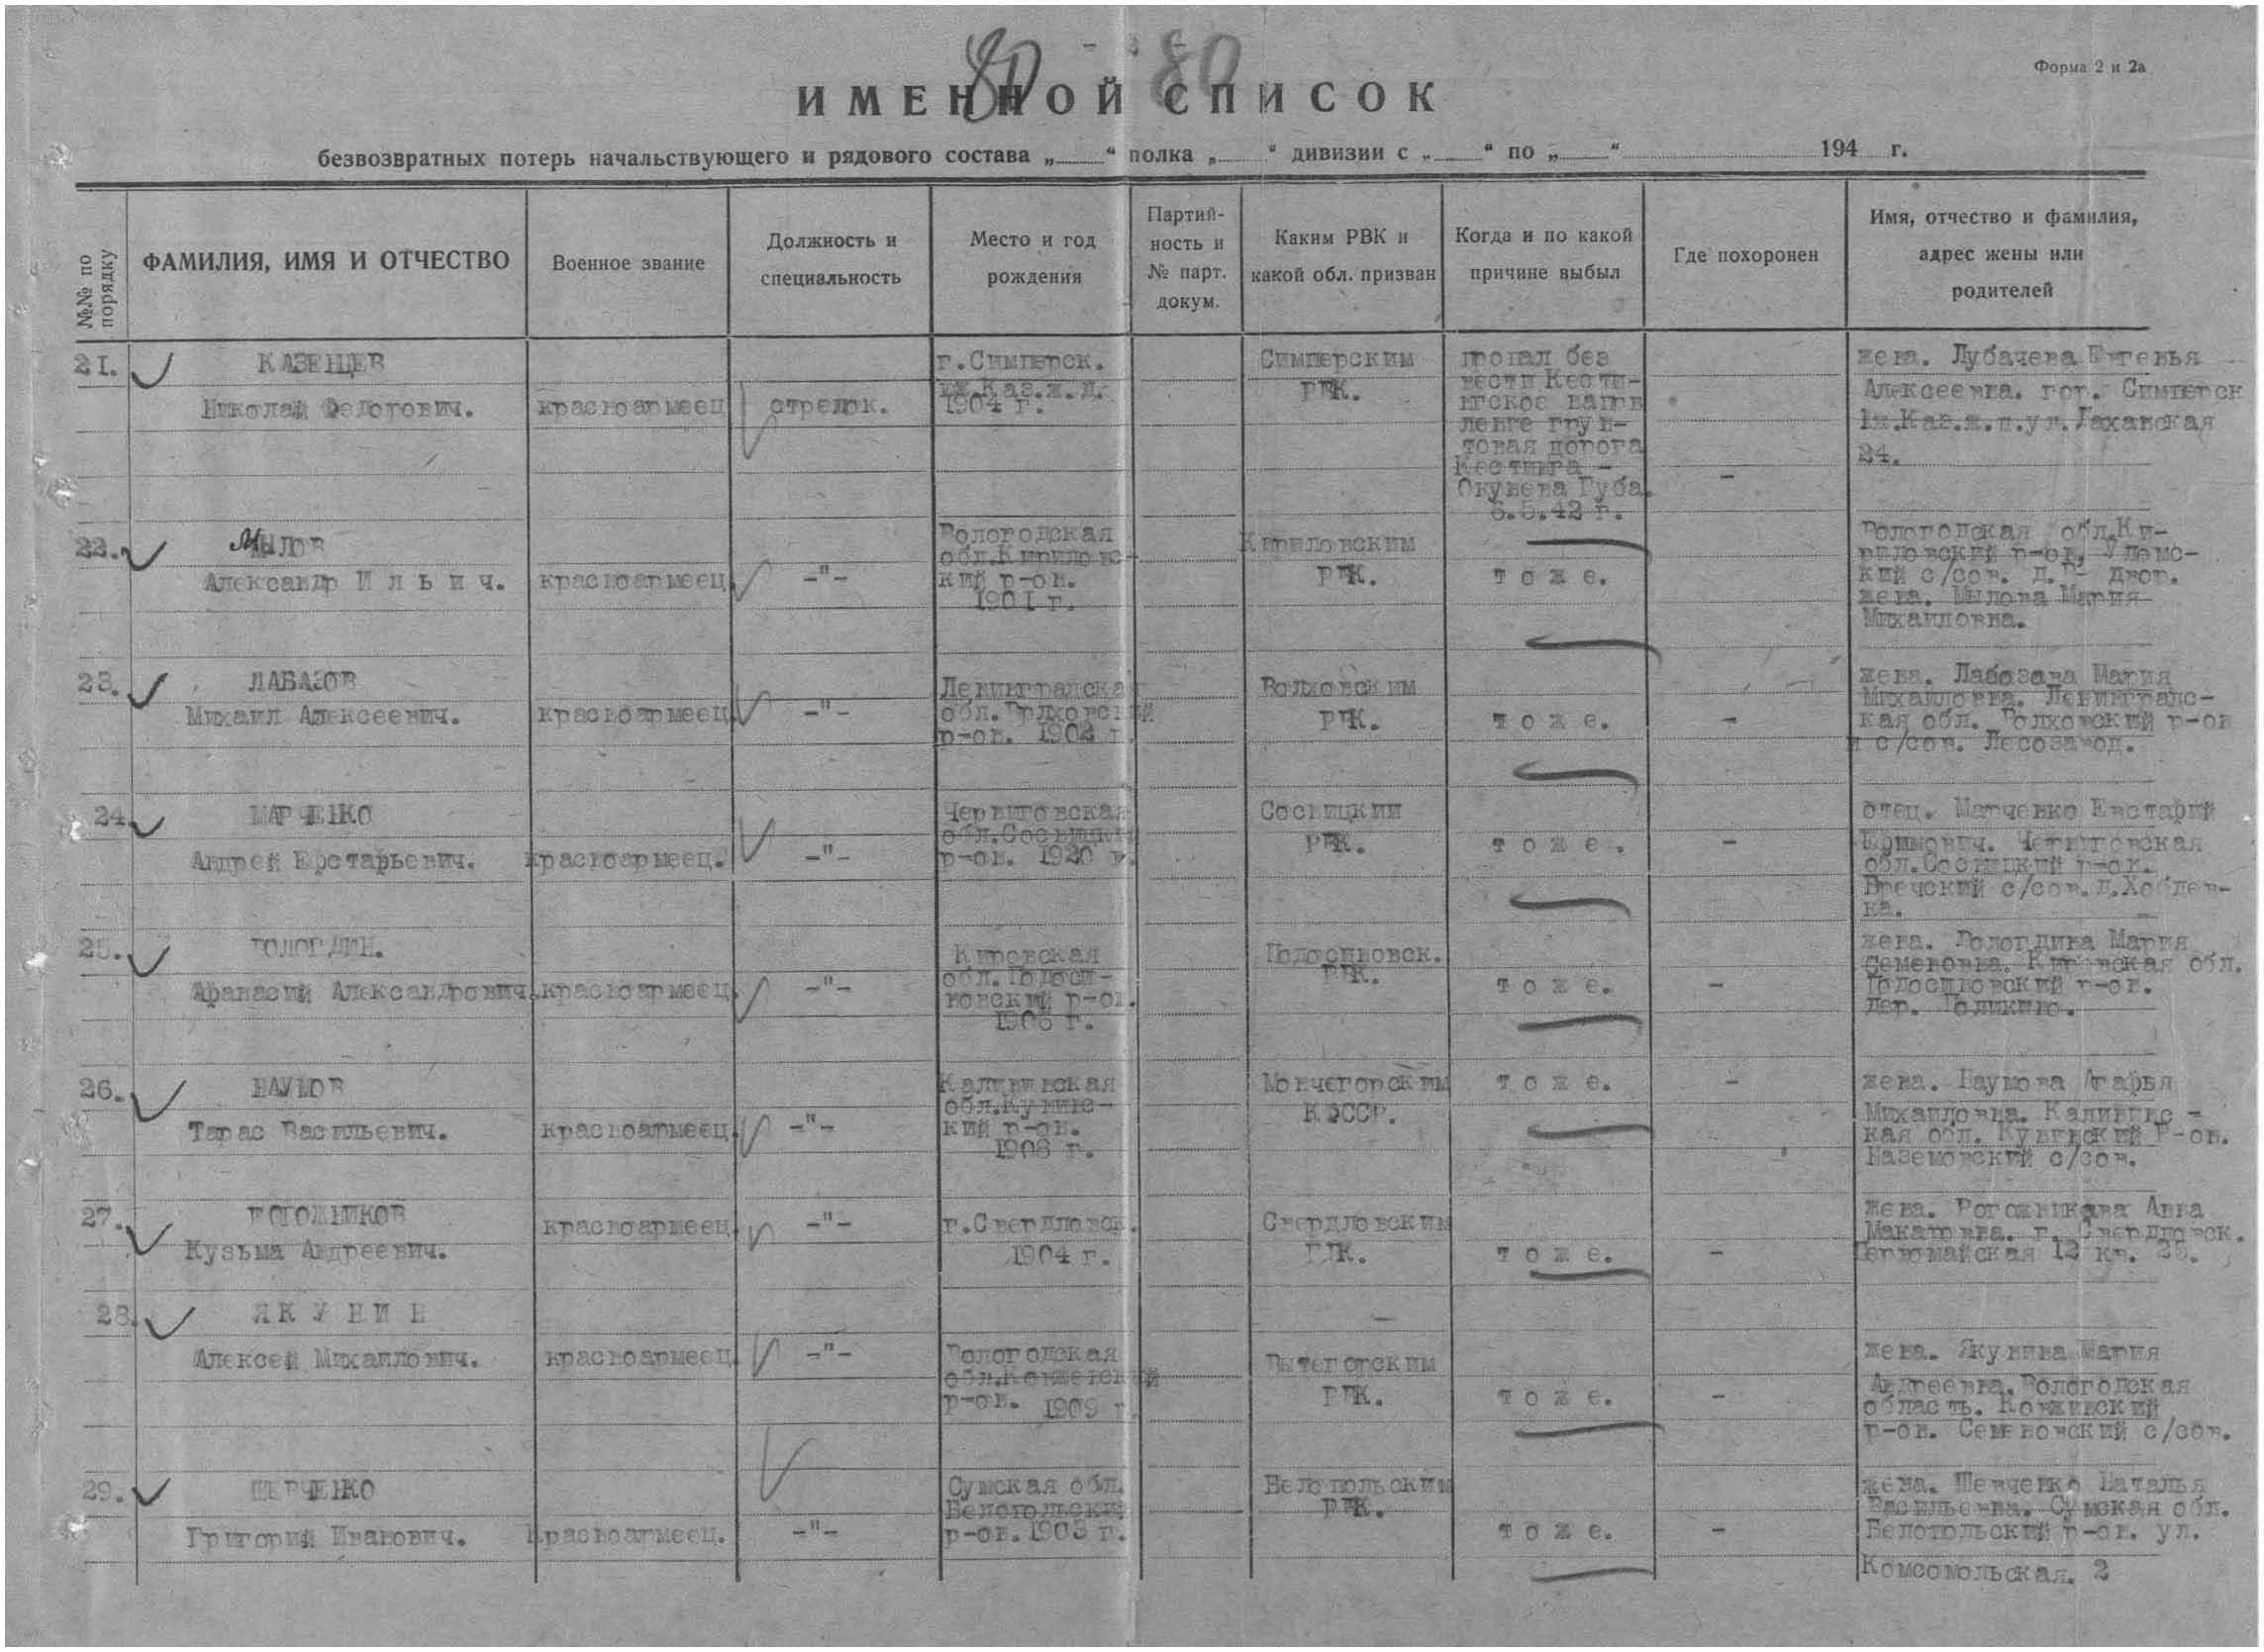 80 80
Форма 2 и 2а
ИМЕННОЙ СПИСОК
безвозвратных потерь начальствующего и рядового состава „ “ полка „ “ дивизии с „ “ по „ “ 194 г.
№№ по порядку
ФАМИЛИЯ, ИМЯ И ОТЧЕСТВО
Военное звание
Должность и
специальность
Место и год
рождения
Партий-
ность и
№ парт.
докум.
Каким РВК и
какой обл. призван
Когда и по какой
причине выбыл
Где похоронен
Имя, отчество и фамилия,
адрес жены или
родителей
21.
КАЗЕНЦЕВ
Николай Федотович.
красноармеец
стрелок.
г.Симперск.
юж.Каз.ж.д.
1904 г.
Симперским
РВК.
пропал без
вести Кести-
нгское напрв
ленге грун-
товая дорога
Кестинга -
Окунева Губа.
6.5.42 г.
-
жена. Лубачева Евгенья
Алексеевна. гор. Симперск
Юж.Каз.ж.д.ул.
24.
22.
МЫЛОВ
Александр И л ь и ч.
красноармеец
-"-
Вологодская
обл.Кириловс-
кий р-он.
1901 г.
Кириловским
РВК.
т о ж е.
Вологодская обл.Ки-
риловский р-он,
кий с/сов. д. двор.
жена. Мылова Мария
Михайловна.
23.
ЛАБАЗОВ
Михаил Алексеевич.
красноармеец.
-"-
Ленинградская
обл.Волховский
р-он. 1902 г.
Волховским
РВК.
т о ж е.
-
жена. Лабозова Мария
Михайловна. Ленинградс-
кая обл. Волховский р-он
и с/сов. Лесозавод.
24.
МАРЧЕНКО
Андрей Ефстафьевич.
красноармеец.
-"-
Черниговская
обл.Сосницкий
р-он. 1920 г.
Сосницкий
РВК.
т о ж е.
-
отец. Марченко Евстафий
Ефимович. Черниговская
обл.Сосницкий р-он.
с/сов.д.
ка.
25.
ВОЛОГДИН.
Афанасий Александрович.
красноармеец.
-"-
Кировская
обл.Подоси-
новский р-он.
1906 г.
Подосиновск.
РВК.
т о ж е.
-
жена. Вологдина Мария
Семеновна. Кировская обл.
Подосиновский р-он.
дер.
26.
НАУМОВ
Тарас Васильевич.
красноармеец.
-"-
Калининская
обл.Кунинс-
кий р-он.
1908 г.
Мончегорским
КФССР.
т о ж е.
-
жена. Наумова Агафья
Михайловна. Калининс -
кая обл. Кунинский Р-он.
Каземовский с/сов.
27.
РОГОЖНИКОВ
Кузьма Андреевич.
красноармеец.
-"-
г.Свердловск.
1904 г.
Свердловским
ГВК.
т о ж е.
-
жена. Рогожникова Анна
Макаровна. г. Свердловск.
Первомайская 12 кв. 25.
28.
Я К У Н И Н
Алексей Михайлович.
красноармеец.
-"-
Вологодская
обл.Ковжевский
р-он. 1909 г.
Вытегорским
РВК.
т о ж е.
-
жена. Якунина Мария
Андреевна. Вологодская
область. Ковжинский
р-он. Семеновский с/сов.
29.
ШЕВЧЕНКО
Григорий Иванович.
Красноармеец.
-"-
Сумская обл.
Белопольский
р-он. 1903 г.
Белопольским
РВК.
т о ж е.
-
жена. Шевченко Наталья
Васильевна. Сумская обл.
Белопольский р-он. ул.
Комсомольская. 2